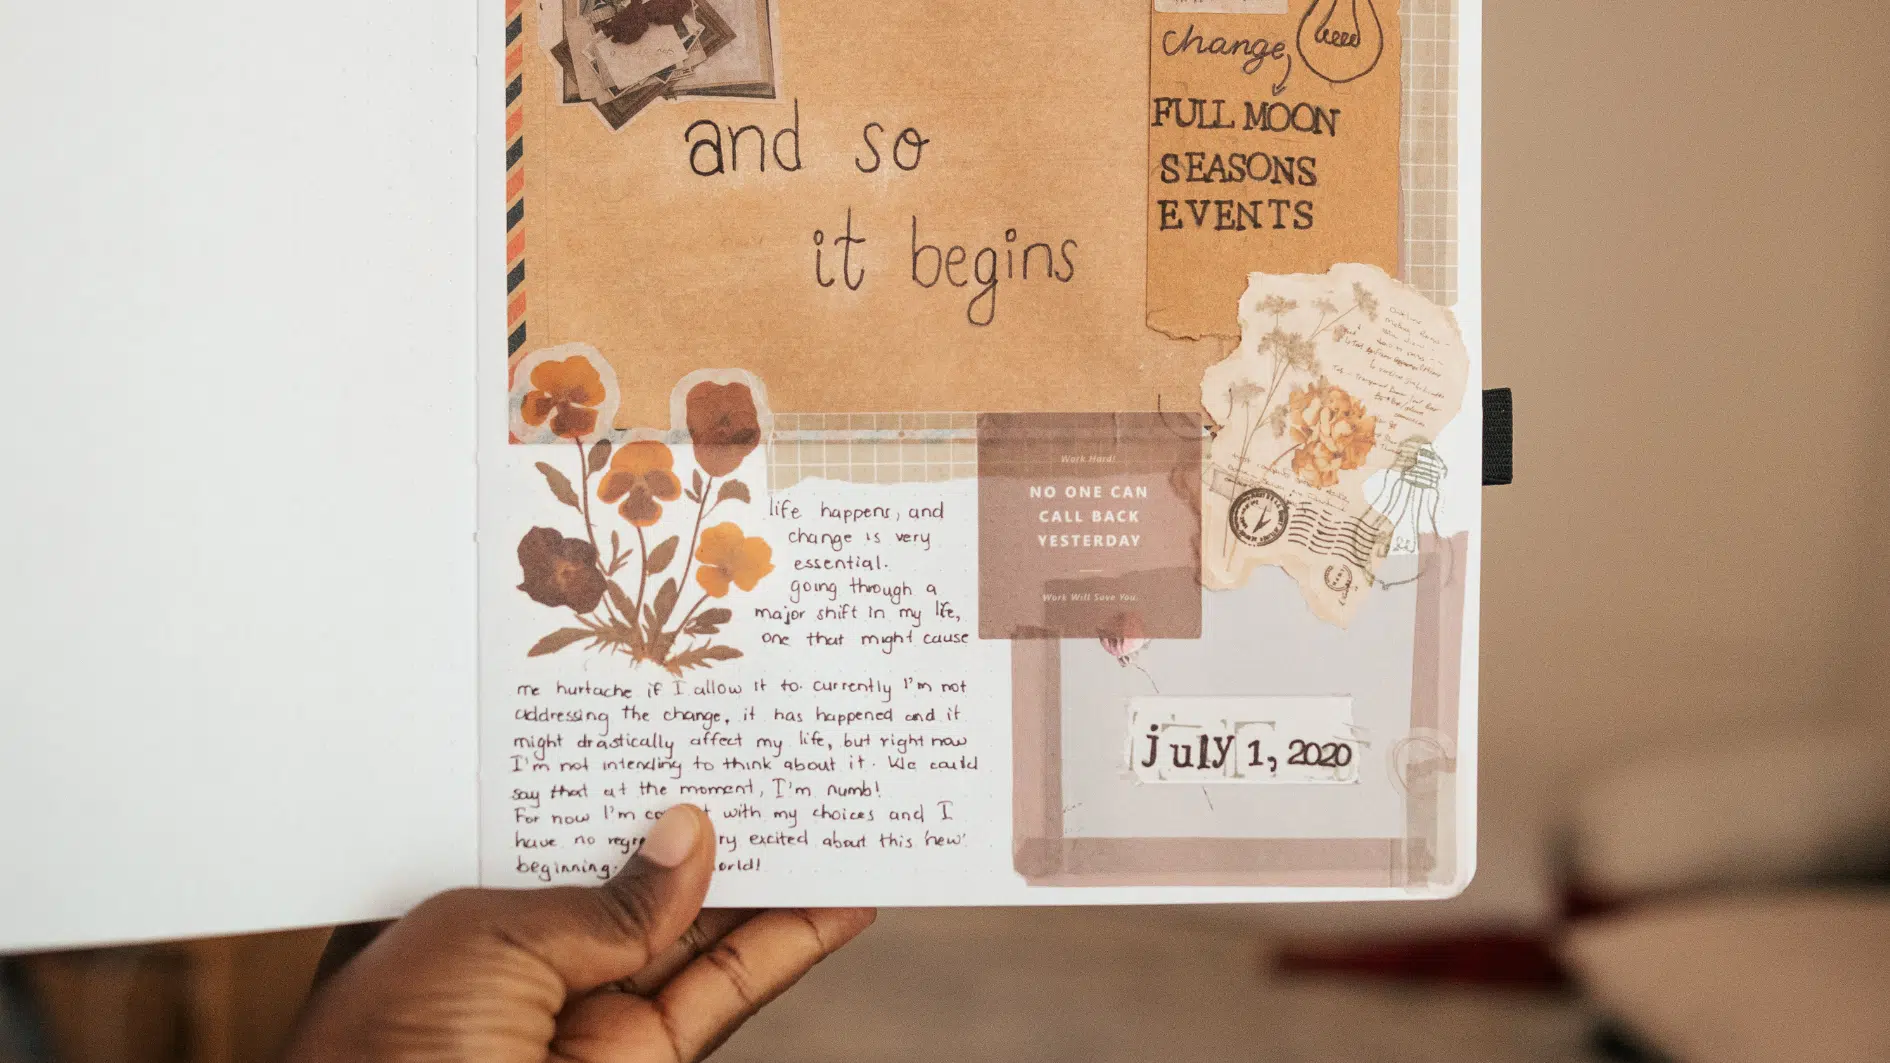 and so
it begins
change,
FULL MOON
SEASONS
EVENTS
life happens, and
change is very
essential.
going through a
major shift in my life,
one that might cause
me hurtache if I allow it to. currently I'm not
addressing the change, it has happened and it
might drastically affect my life, but right now
I'm not intending to think about it. We could
say that at the moment, I'm numb!
For now I'm with my choices and I
have no excited about this 'new'
beginning.
Work Hard!
NO ONE CAN
CALL BACK
YESTERDAY
Work Will Save You.
july 1, 2020